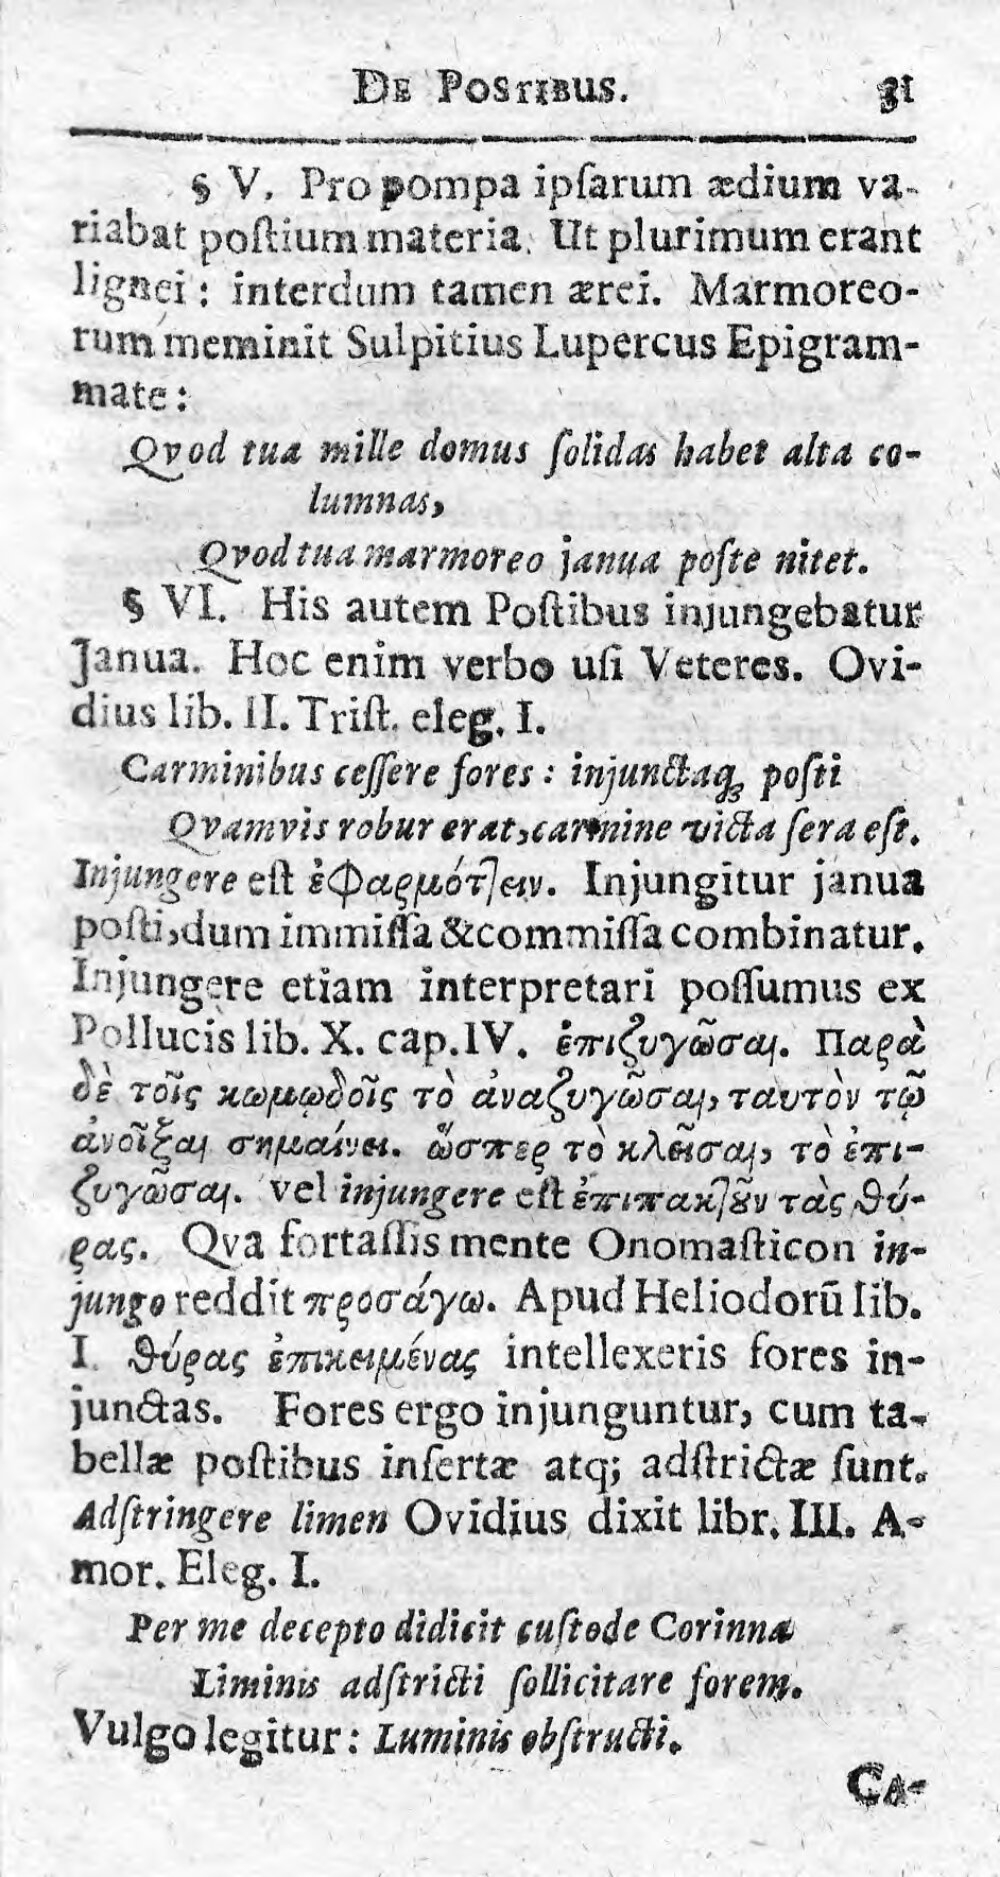 DE POSTIBUS. 31
§ V. Pro pompa ipſarum ædium va-
riabat poſtium materia. Ut plurimum erant
lignei: interdum tamen ærei. Marmoreo-
rum meminit Sulpitius Lupercus Epigram-
mate:
Qvod tua mille domus ſolidas habet alta co-
lumnas,
Qvod tua marmoreo janua poſte nitet.
§ VI. His autem Poſtibus injungebatur
Janua. Hoc enim verbo uſi Veteres. Ovi-
dius lib. II. Triſt. eleg. I.
Carminibus ceſſere fores: injunctaq; poſti
Qvamvis robur erat, carmine victa ſera eſt.
Injungere eſt ἐφαρμότ]ειν. Injungitur janua
poſti, dum immiſſa & commiſſa combinatur.
Injungere etiam interpretari poſſumus ex
Pollucis lib. X. cap. IV. ἐπιζυγῶσαι. Παρὰ
δὲ τοῖς κωμῳδοῖς τὸ ἀναζυγῶσαι, ταυτὸν τῷ
ἀνοῖξαι σημαίνει. ὥσπερ τὸ κλεῖσαι, τὸ ἐπι-
ζυγῶσαι. vel injungere eſt ἐπιπακ]ȣ͂ν τὰς θύ-
ρας. Qva fortaſſis mente Onomaſticon in-
jungo reddit προσάγω. Apud Heliodorū lib.
I. θύρας ἐπικειμένας intellexeris fores in-
junctas. Fores ergo injunguntur, cum ta-
bellæ poſtibus inſertæ atq; adſtrictæ ſunt.
Adſtringere limen Ovidius dixit libr. III. A-
mor. Eleg. I.
Per me decepto didicit cuſtode Corinna
Liminis adſtricti ſollicitare forem.
Vulgo legitur: Luminis obſtructi.
CA-